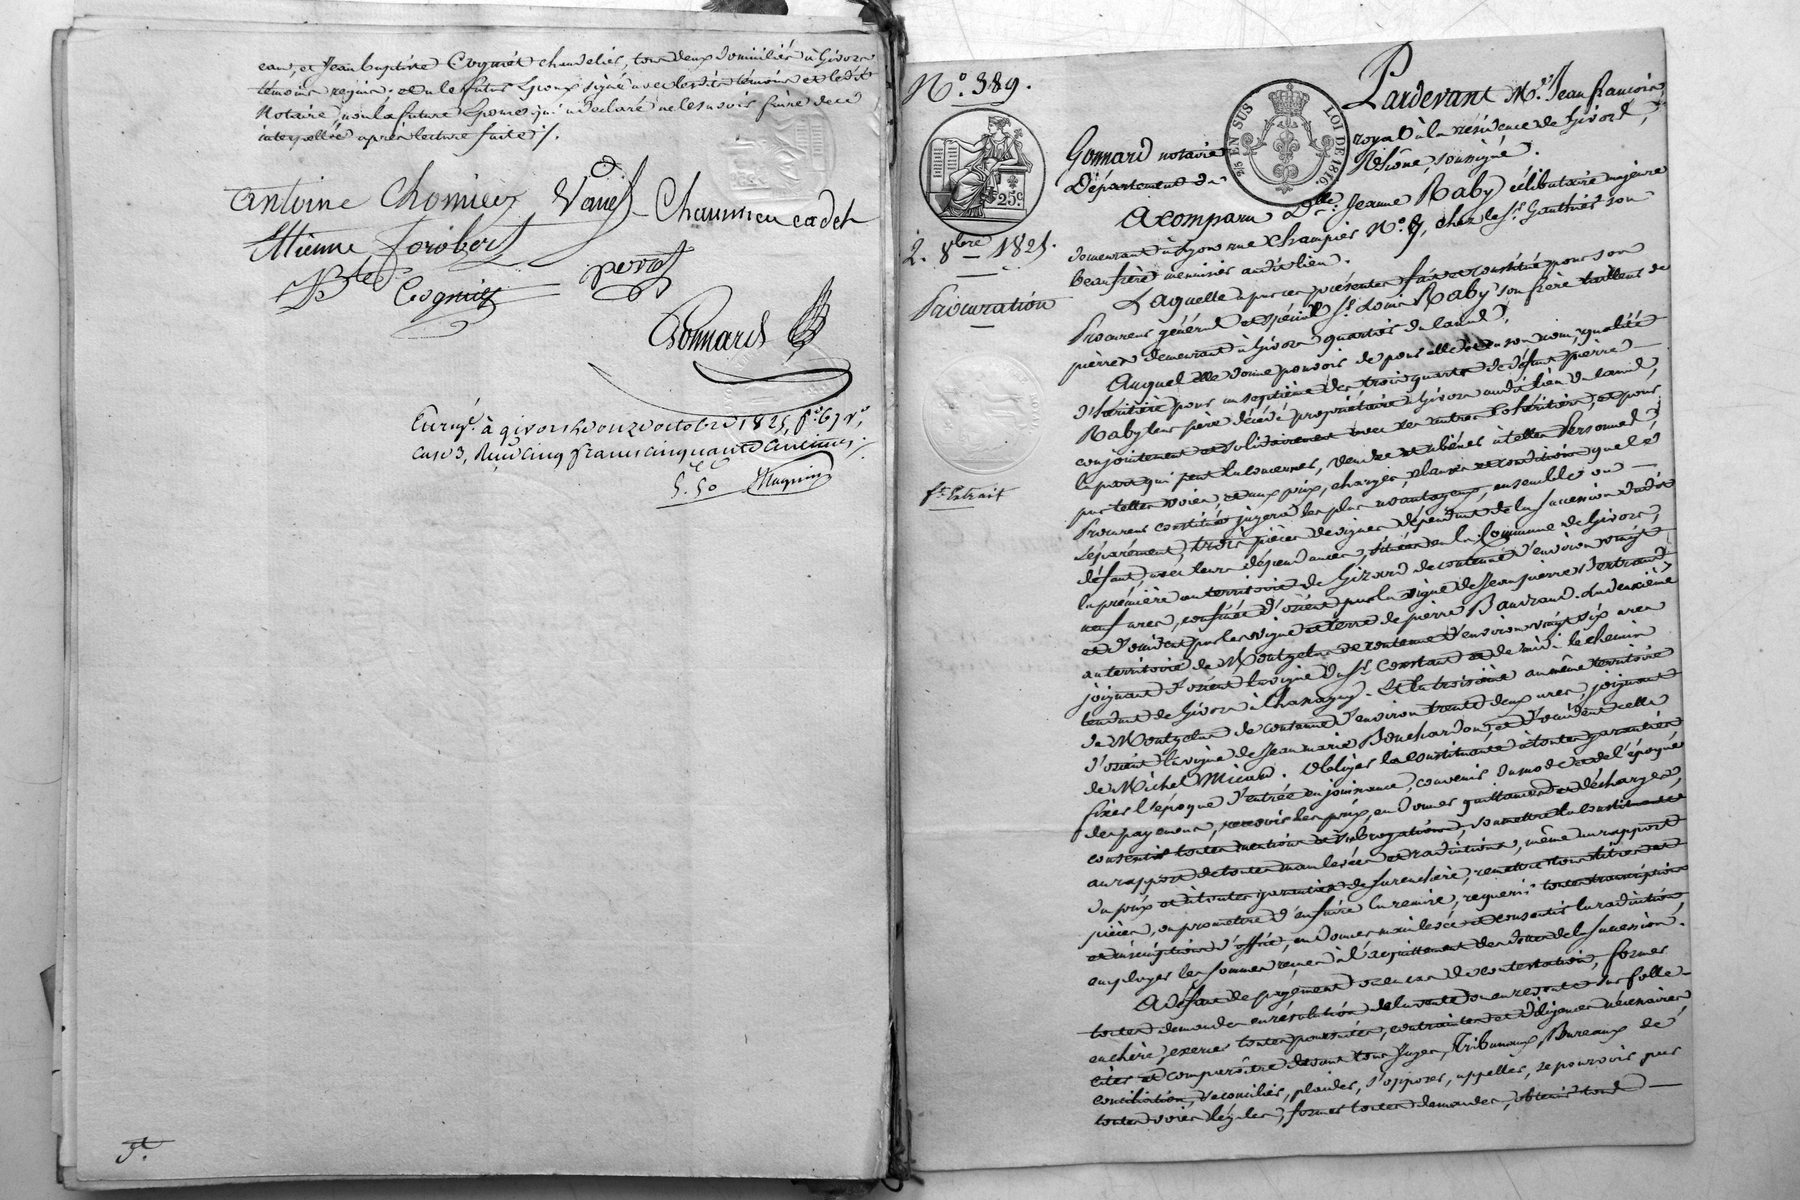 eau, et Jean baptiste Cognet chandelier, tous deux domiciliés à Givors
témoins requis. et le futur Epoux signé avec lesdits témoins et ledit
Notaire, non la future Epouse qui a déclaré ne le savoir faire de ce
interpellée après lecture faite ./.
antoine Chomieux Chaumieu cadet
Etienne Jorobert
Bte Cognet perrot
Gonnard
Enregé. à givors le onze octobre 1825, fo. 67 vo.
case 3, Reçu cinq francs cinquante centimes ./.
5. 50 Magnin
No. 389.
25c
2. 8bre 1825.
Procuration
ft. Extrait
5/5 EN SUS LOI DE 1816.
Pardevant Mr. Jean françois
Gonnard notaire royal à la résidence de Givors,
Département du Rhône, soussigné.
A comparu Dlle. Jeanne Raby célibataire majeure
demeurant à Lyon rue champier No. 9, chez le Sr. Gauthier son
beaufrère menuisier audit lieu.
Laquelle a par ces présentes fait et constitué pour son
Procureur général et spécial Sr. Louis Raby son frère tailleur de
pierres demeurant à Givors quartier du canal,
Auquel elle donne pouvoir de pour elle et en son nom, qualité
d'héritière pour un septième des trois quarts de défunt pierre
Raby leur père décédé propriétaire à Givors audit lieu du canal,
conjointement et solidairement avec ses autres cohéritiers, et pour
la part qui peut la concerner, vendre et aliéner à telles Personnes,
par telles voies, et aux prix, charges, clauses et conditions que led.
Procureur constitué jugera les plus avantageux, ensemble ou
séparément, trois pièces de vignes dépendant de la succession dudit
défunt, avec leurs dépendances, situées en la Commune de Givors,
la première au territoire de Gizard de contenue d'environ vingt
neuf ares, confinée d'orient par la vigne de Jean pierre Bertrand
et d'occident par les vigne et terre de pierre Bandrand. La deuxième
au territoire de Montgelas de contenue d'environ vingt six ares
joignant d'orient la vigne du Sr. Constant et de midi le chemin
tendant de Givors à Chassagny. Et la troisième au même territoire
de Montgelas de contenue d'environ trente deux ares, joignant
d'orient la vigne de Jean marie Bouchardon, et d'occident celle
de Michel Micard. Obliger la constituante à toutes garanties
fixer l'époque d'entrée en jouissance, convenir du mode et de l'époque
de payement, recevoir les prix, en donner quittances et décharges,
consentir toutes mentions et subrogations, soumettre la constituante
au rapport de toutes mainlevées et radiations, même au rapport
du prix et à toutes garanties de surenchère, remettre tous titres et
pièces, ou promettre d'en faire la remise, requérir toutes transcriptions
et inscriptions d'office, en donner mainlevée et consentir la radiation,
employer les sommes reçues à l'acquittement des dettes de la succession.
A défaut de payement ou en cas de contestation, former
toutes demandes en résolution de la vente ou en revente sur folle
enchère, exercer toutes poursuites, contraintes et diligences nécessaires
citer et comparaître devant tous Juges, Tribunaux, Bureaux de
conciliation, se concilier, plaider, s'opposer, appeller, se pourvoir par
toutes voies légales, former toutes demandes, obtenir tous